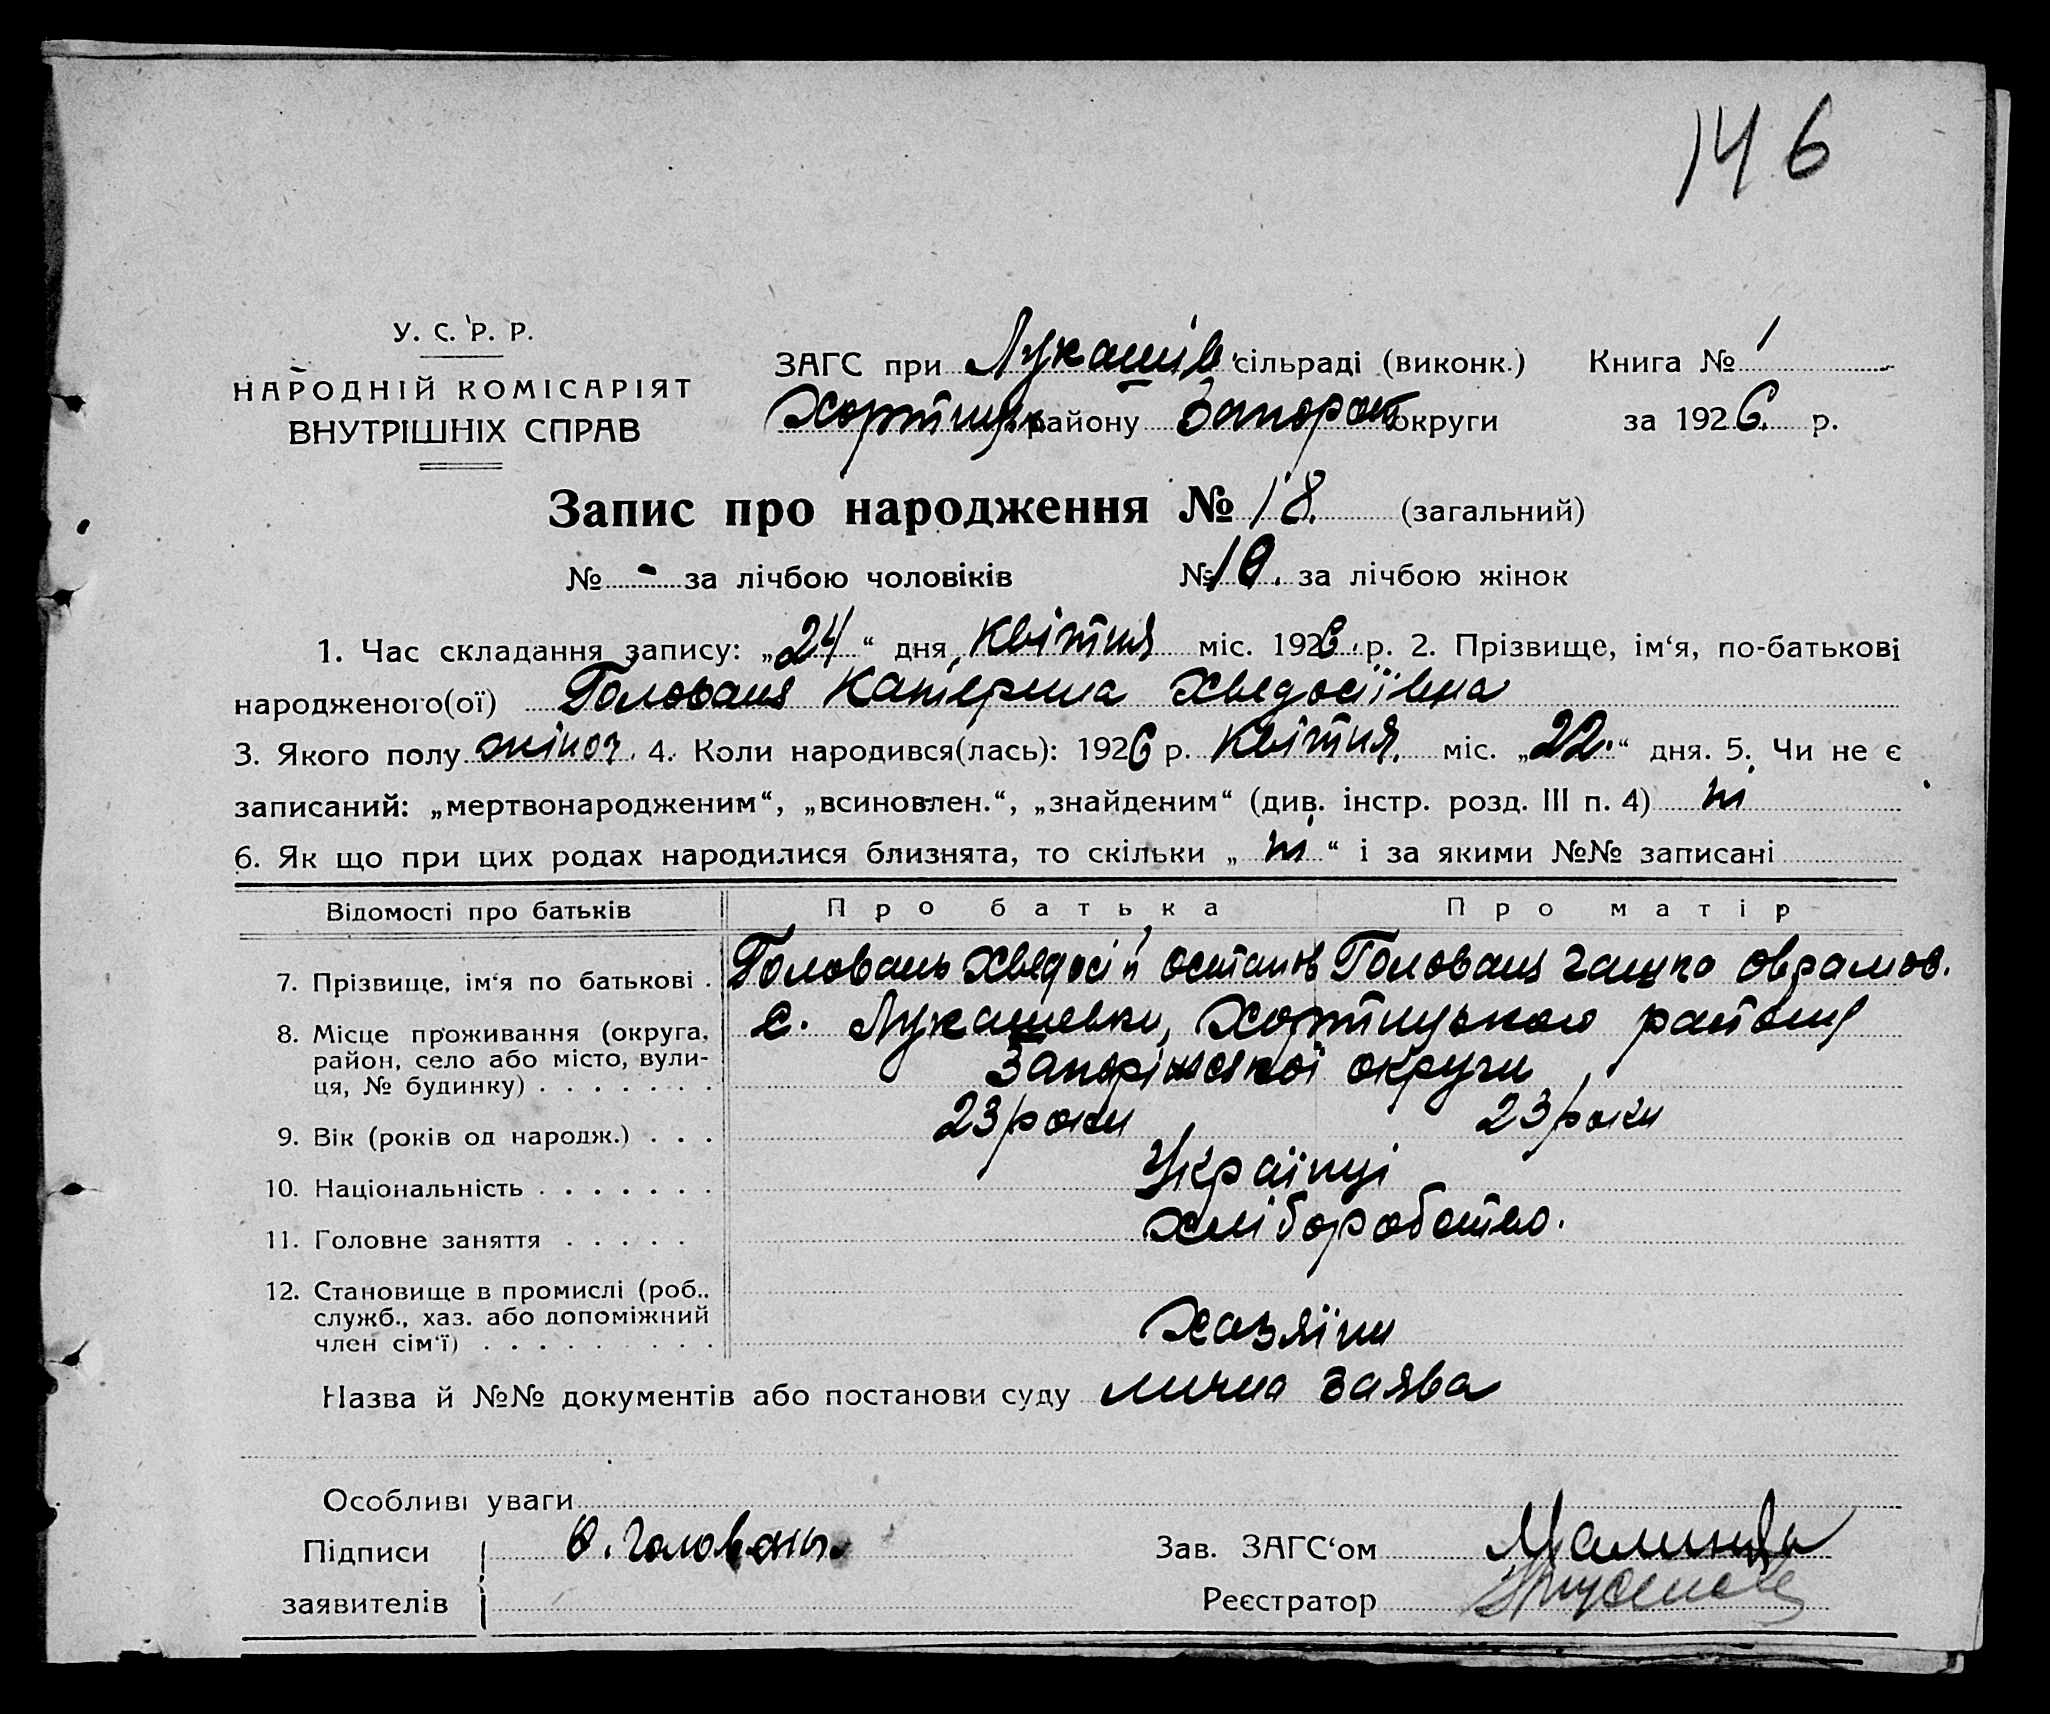 146
У. С. Р. Р.
НАРОДНІЙ КОМІСАРІЯТ
ВНУТРІШНІХ СПРАВ
ЗАГС при Лукашів. сільраді (виконк.) Книга № 1
Хортицьк. району Запорож округи за 1926 р.
Запис про народження № 18. (загальний)
№ - за лічбою чоловіків № 10. за лічбою жінок
1. Час складання запису: „24“ дня квітня міс. 1926. р. 2. Прізвище, ім‘я, по-батькові
народженого(ої) Головань Катерина Хведосіївна
3. Якого полу жіноч. 4. Коли народився(лась): 1926 р. квітня. міс. „22.“ дня. 5. Чи не є
записаний: „мертвонародженим“, „всиновлен.“, „знайденим“ (див. інстр. розд. III п. 4) ні
6. Як що при цих родах народилися близнята, то скільки „ ні “ і за якими №№ записані
Відомості про батьків Про батька Про матір
7. Прізвище, ім‘я по батькові . Головань Хведосій Остапов Головань Ганна Оврамов.
8. Місце проживання (округа, район, село або місто, вулиця, № будинку) . . . . . . . с. Лукашевки, Хортицького району
Запоріжської округи
9. Вік (років од народж.) . . . 23 роки 23 роки
10. Національність . . . . . . . Українці
11. Головне заняття . . . . . хліборобство.
12. Становище в промислі (роб.. служб., хаз. або допоміжний член сім‘ї) . . . . . . . . . Хазяїни
Назва й №№ документів або постанови суду лична заява
Особливі уваги
Підписи Ѳ. Головань. Зав. ЗАГС‘ом
заявителів Реєстратор